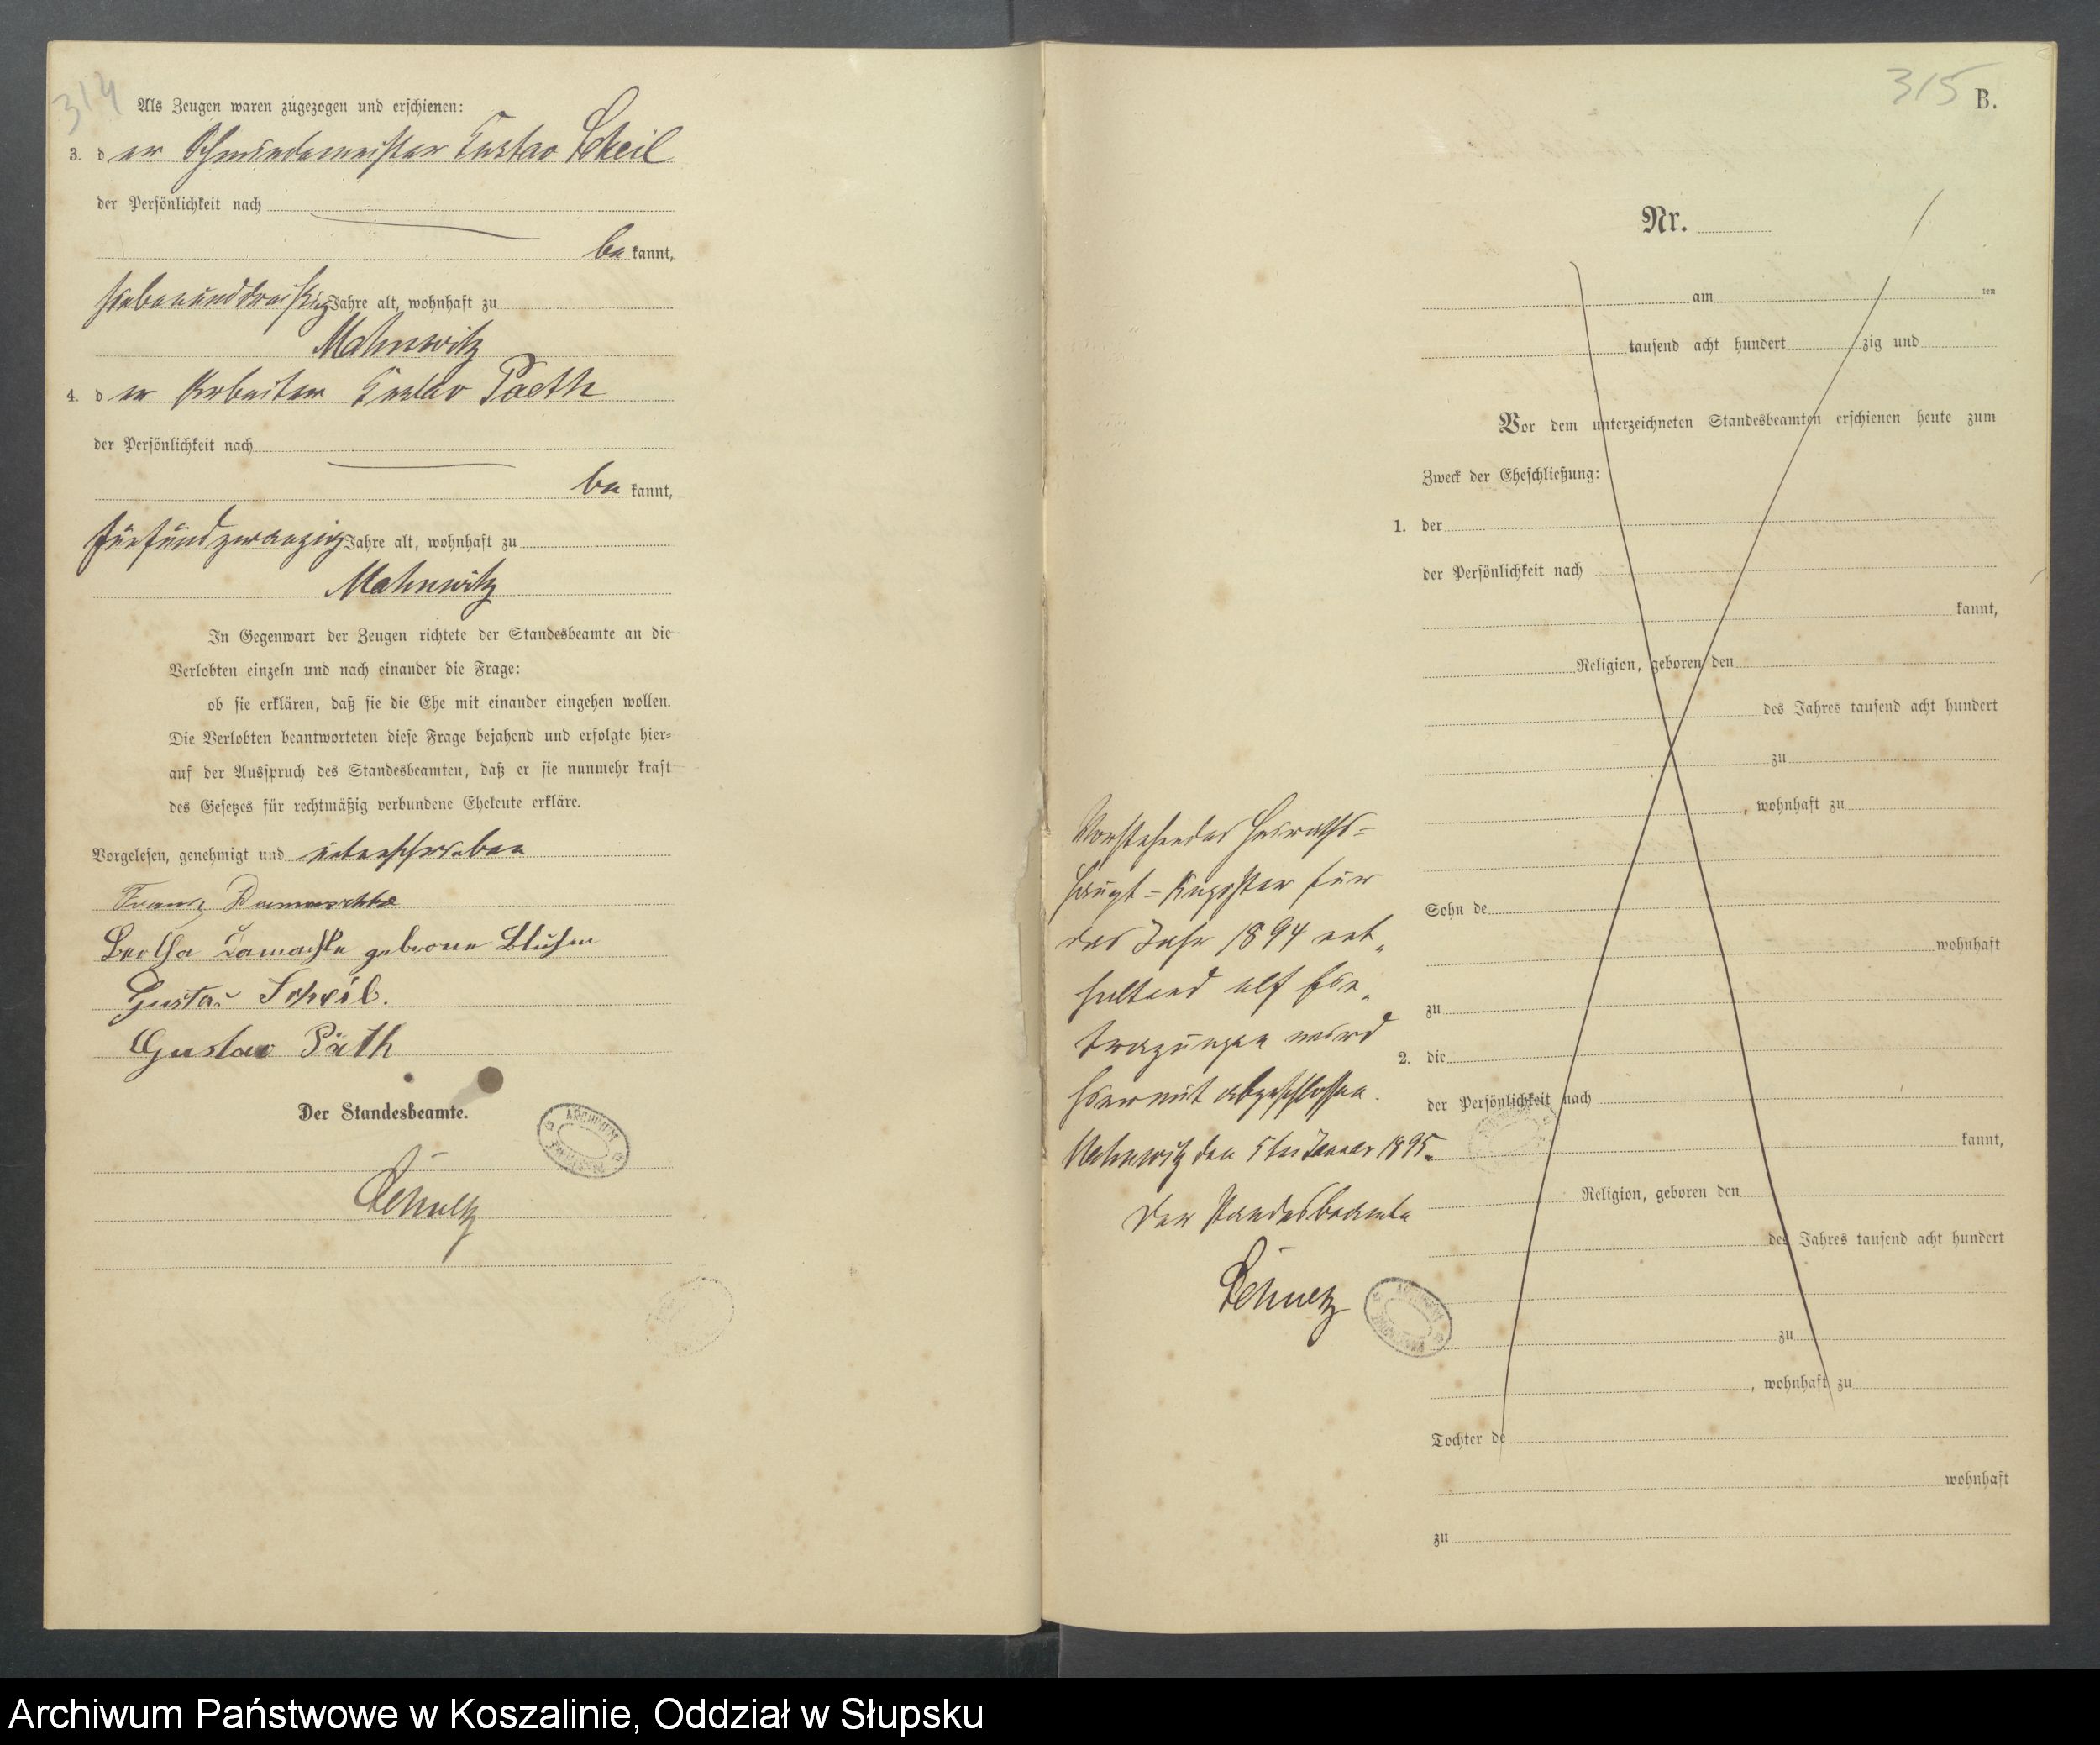 314
Als Zeugen waren zugezogen und erschienen:
3. der Schmiedemeister Gustav Scheil
der Persönlichkeit nach
bekannt,
siebenunddreißig Jahre alt, wohnhaft zu
Mahnwitz
4. der Arbeiter Gustav Paeth
der Persönlichkeit nach
bekannt,
fünfundzwanzig Jahre alt, wohnhaft zu
Mahnwitz
In Gegenwart der Zeugen richtete der Standesbeamte an die
Verlobten einzeln und nach einander die Frage:
ob sie erklären, daß sie die Ehe mit einander eingehen wollen.
Die Verlobten beantworteten diese Frage bejahend und erfolgte hier-
auf der Ausspruch des Standesbeamten, daß er sie nunmehr kraft
des Gesetzes für rechtmäßig verbundene Eheleute erkläre.
Vorgelesen, genehmigt und unterschrieben
Franz Damaschke
Bertha Damaschke geborene
Gustav Scheil.
Gustav Päth
Der Standesbeamte.
ARCHIWUM
Schultz
315
B.
Nr.
am ten
tausend acht hundert zig und
Vor dem unterzeichneten Standesbeamten erschienen heute zum
Zweck der Eheschließung:
1. der
der Persönlichkeit nach
kannt,
Religion, geboren den
des Jahres tausend acht hundert
zu
, wohnhaft zu
Sohn de
wohnhaft
zu
2. die
der Persönlichkeit nach
kannt,
Religion, geboren den
des Jahres tausend acht hundert
zu
, wohnhaft zu
Tochter de
wohnhaft
zu
Vorstehendes Heiraths-
Haupt-Register für
das Jahr 1894 ent-
haltend elf Ein-
tragungen wird
hiermit abgeschlossen.
Mahnwitz den 5ten Januar 1895.
Der Standesbeamte
Schultz
Archiwum Państwowe w Koszalinie, Oddział w Słupsku